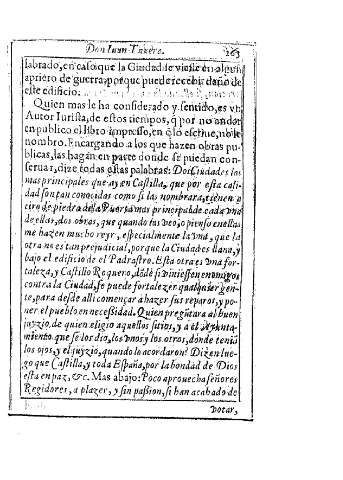 Don Iuan Tauere. 263
labrado, en caso que la Ciudad se viesse en algun
aprieto de guerra, porque puede recebir daño de
este edificio.
Quien mas le ha considerado y sentido, es vn
Autor Iurista, de estos tiempos, q̃ por no andar
en publico el libro impresso, en q̃ lo escriue, no le
nombro. Encargando a los que hazen obras pu-
blicas, las hagan en parte donde se puedan con-
seruar, dize todas estas palabras: Dos Ciudades los
mas principales que ay en Castilla, que por esta cali-
dad son tan conocidas como si las nombrara, tienen a
tiro de piedra de la Puerta mas principal de cada vna
de ellas, dos obras, que quando las veo, o pienso en ellas
me hazen mucho reyr, especialmente la vna, que la
otra no es tan prejuicial, porque la Ciudad es llana, y
bajo el edificio de el Padrastro. Esta otra es vna for-
taleza, y Castillo Roquero, dõde si viniessen enemigos
contra la Ciudad, se puede fortalezer qualquier gen-
te, para desde alli començar a hazer sus reparos, y po-
ner el pueblo en necessidad. Quien pregũtara al buen
juyzio, de quien eligio aquellos sitios, y a el Ayunta-
miento que se los dio, los vnos y los otros, dónde tenian
los ojos, y el juyzio, quando lo acordaron? Dizen lue-
go que Castilla, y toda España, por la bondad de Dios
esta en paz, &c. Mas abajo: Poco aprouecha señores
Regidores, a plazer, y sin passion, si han acabado de
votar,